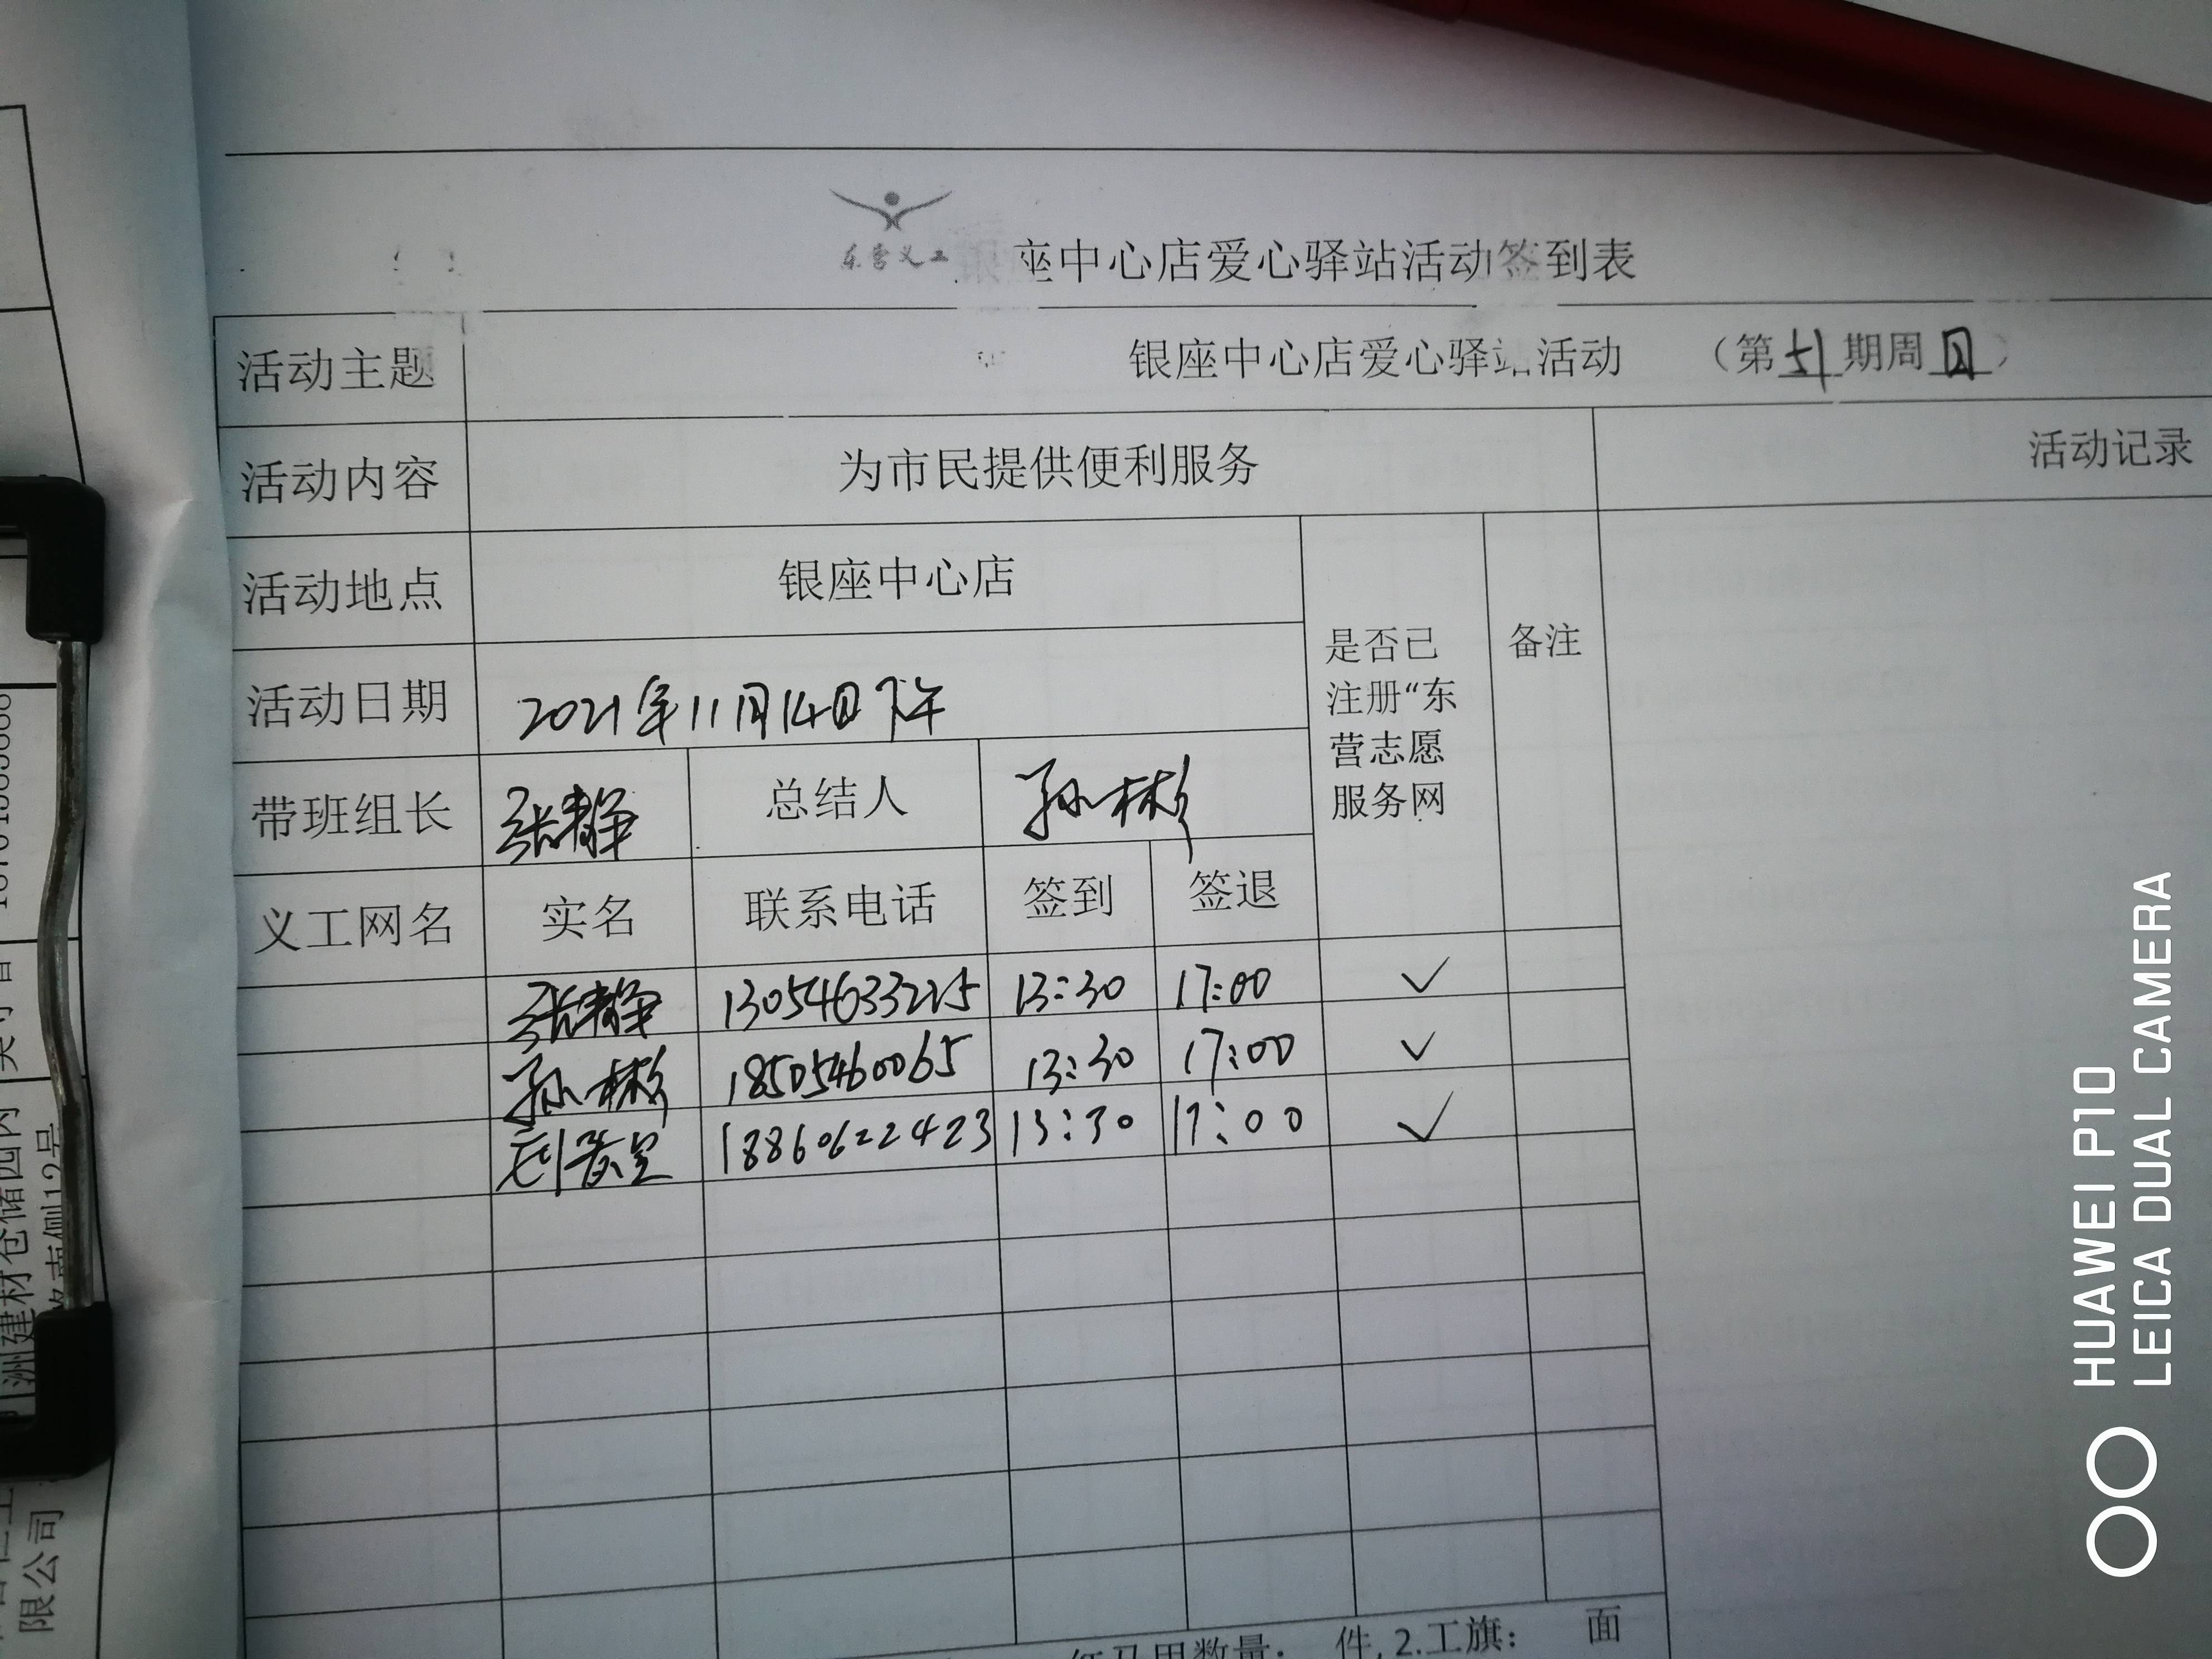 东营义工
座中心店爱心驿站活动签到表
活动主题 银座中心店爱心驿站活动 （第 期周日）
活动内容 为市民提供便利服务 活动记录
活动地点 银座中心店
是否已注册“东营志愿服务网
备注
活动日期 2021年11月14日下午
带班组长 张静 总结人 孙彬
义工网名 实名 联系电话 签到 签退
张静 13054633215 13:30 17:00 ✓
孙彬 18505460065 13:30 17:00 ✓
18860622423 13:30 17:00 ✓
数量： 件, 2.工旗： 面
洲建材仓储园内
南侧12号
限公司
HUAWEI P10
LEICA DUAL CAMERA